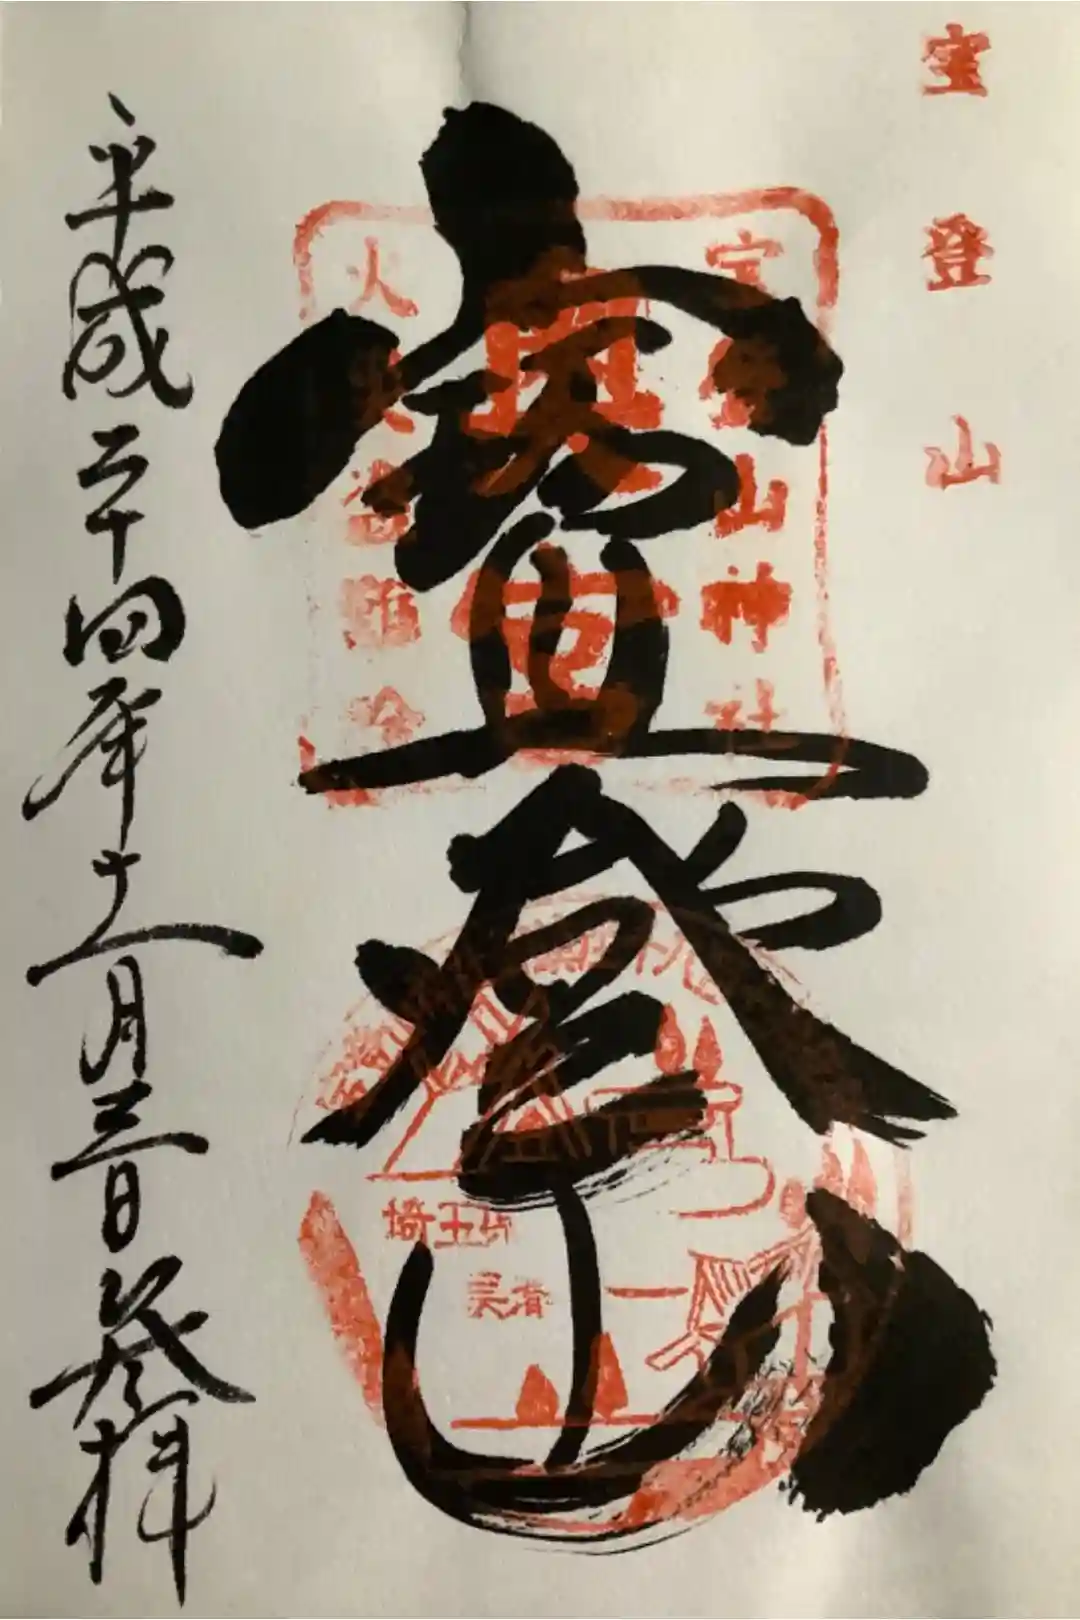 宝登山
寶登山
宝登山神社
火災盗難除
埼玉
長瀞
平成二十四年十一月三日 登拝